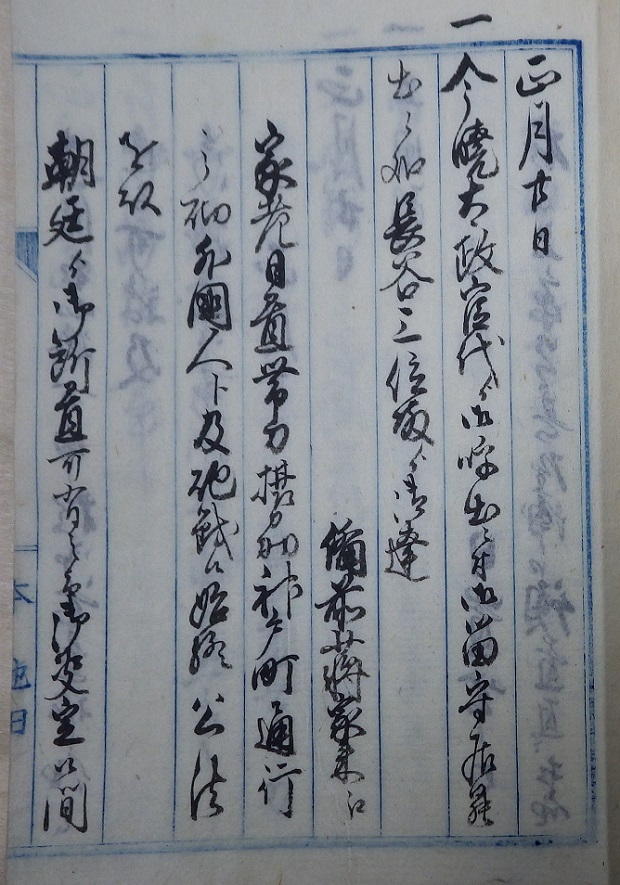 正月廿日
一今暁太政官代ゟ御呼出ニ付御留守居罷
出候処長谷三位殿ゟ御達
備前少将家来江
家老日置帯刀摂州神戸町通行
之砌外国人ト及砲戦候始終公法
を以
朝廷ゟ御処置可有之御決定候間